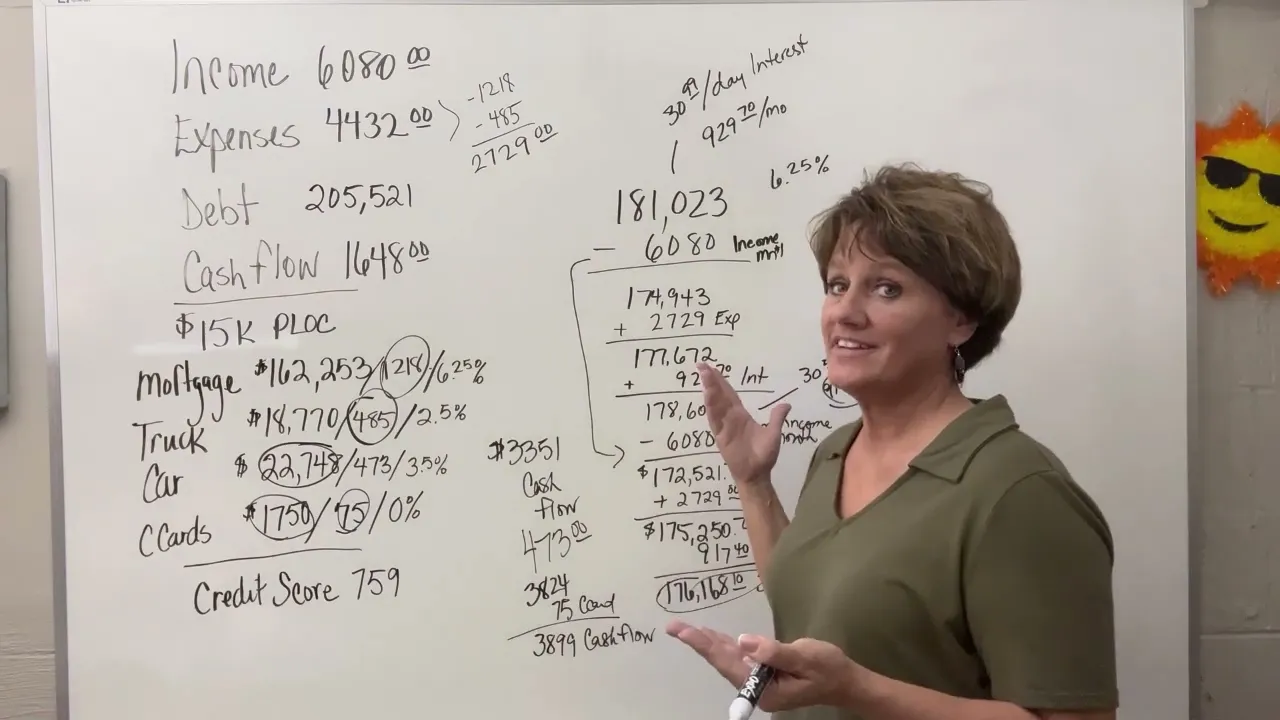 Income 6080 00
Expenses 4432 00
-1218
-485
2729 00
Debt 205,521
Cashflow 1648 00
$15K PLOC
Mortgage $162,253/1218/6.25%
Truck $18,770/485/2.5%
Car $22,748/473/3.5%
CCards $1750/75/0%
Credit Score 759
$3351
Cash
flow
473 00
3824
75 Card
3899 Cashflow
30 99/day Interest
929 70/mo
6.25%
181,023
- 6080 Income
174,943
+ 2729 Exp
177,672
+ 92 70 Int
30
178,60
- 6080 income
$172,521.
+ 2729 00
$175,250.7
917 40
176,168 10
EXPO